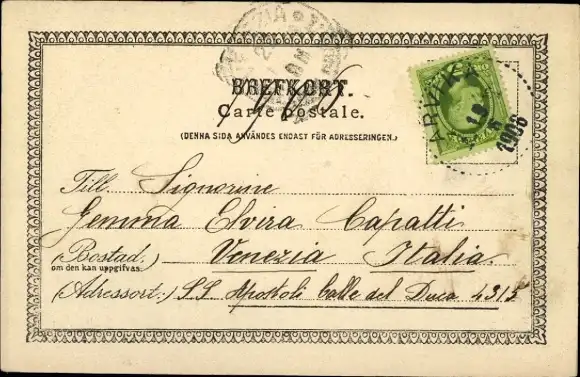 VENEZIA
BREFKORT.
Carte postale.
(DENNA SIDA ANVÄNDES ENDAST FÖR ADRESSERINGEN.)
ARVIKA
1906
Till Signorine
Gemma Elvira Capatti
(Bostad. Venezia Italia.
om den kan uppgifvas.)
(Adressort:) SS Apostoli Calle del Duca 4315